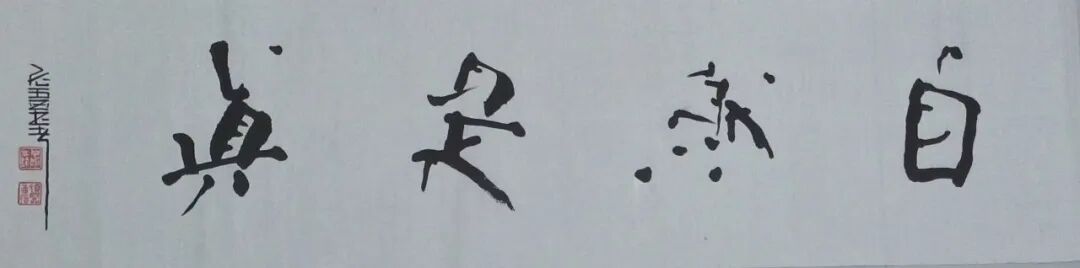 自然是真